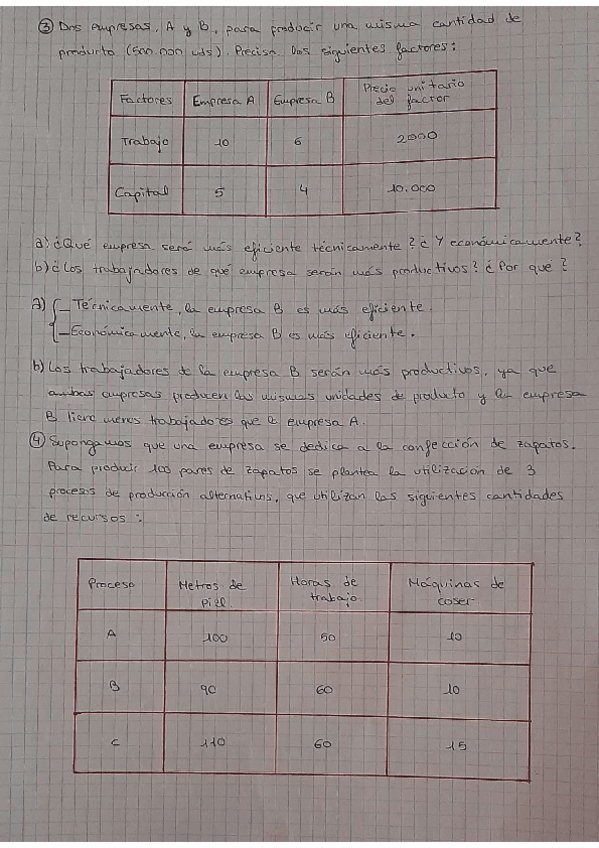 ③ Dos empresas, A y B, para producir una misma cantidad de
producto (500.000 uds). Precisa los siguientes factores:
Factores Empresa A Empresa B Precio unitario del factor
Trabajo 10 6 2000
Capital 5 4 10.000
a) ¿Qué empresa será más eficiente técnicamente? ¿Y económicamente?
b) ¿Los trabajadores de qué empresa serán más productivos? ¿Por qué?
a) - Técnicamente, la empresa B es más eficiente.
- Económicamente, la empresa B es más eficiente.
b) Los trabajadores de la empresa B serán más productivos, ya que
ambas empresas producen las mismas unidades de producto y la empresa
B tiene menos trabajadores que la empresa A.
④ Supongamos que una empresa se dedica a la confección de zapatos.
Para producir 100 pares de zapatos se plantea la utilización de 3
procesos de producción alternativos, que utilizan las siguientes cantidades
de recursos:
Proceso Metros de piel. Horas de trabajo. Máquinas de coser
A 100 50 10
B 90 60 10
C 110 60 15